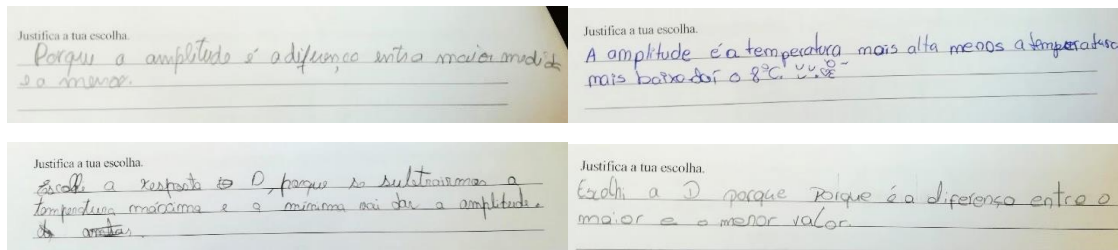 Justifica a tua escolha.
Porque a amplitude é a diferença entra maior medida
e a menor.
Justifica a tua escolha.
A amplitude é a temperatura mais alta menos a temperatura
mais baixa daí o 8°C.
Justifica a tua escolha.
Escolhi a resposta D, porque se subtrairmos a
temperatura máxima e a minima vai dar a amplitude.
Justifica a tua escolha.
Escolhi a D porque porque é a diferença entre o
maior e o menor valor.